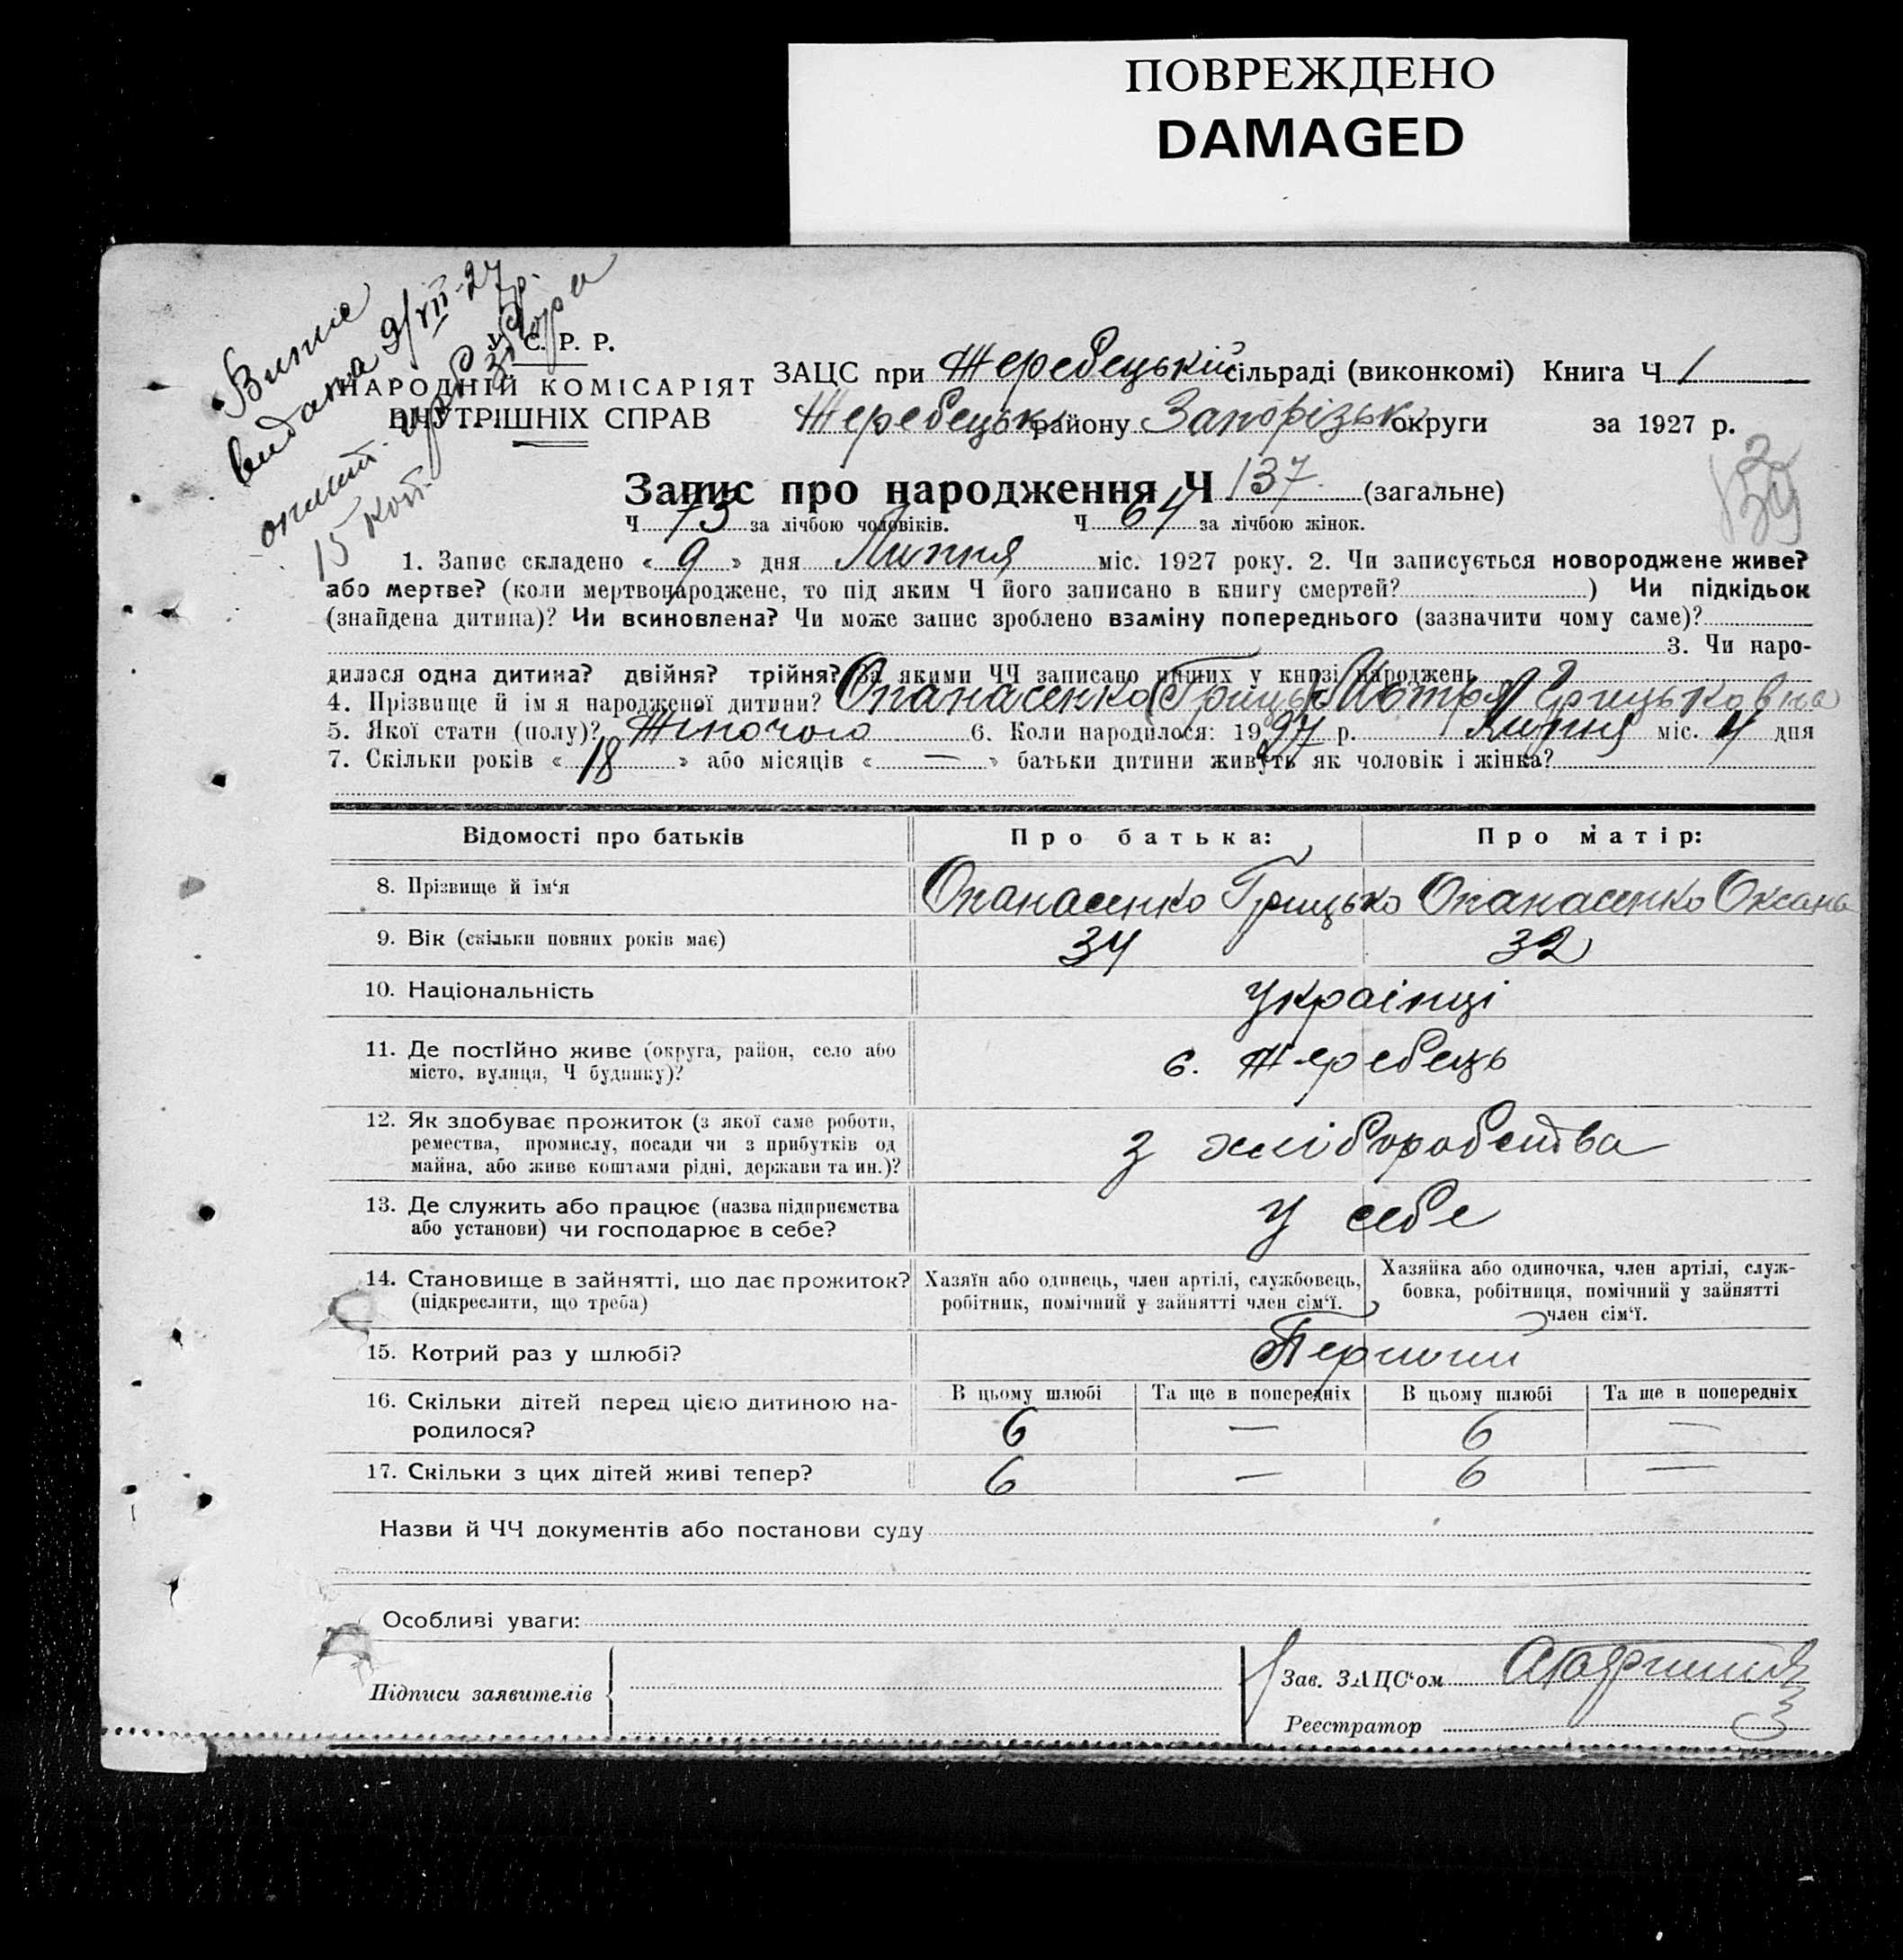 ПОВРЕЖДЕНО
DAMAGED
Випис
видана 9/VII-27 р.
оплит. герб збора
15 коп.
У. С. Р. Р.
НАРОДНІЙ КОМІСАРІЯТ
ВНУТРІШНІХ СПРАВ
ЗАЦС при Жеребецькій сільраді (виконкомі) Книга Ч 1
Жеребецьк району Запорізьк округи за 1927 р.
Запис про народження Ч 137 (загальне)
Ч 73 за лічбою чоловіків. Ч 64 за лічбою жінок.
1. Запис складено « 9 » дня Липня міс. 1927 року. 2. Чи записується новороджене живе?
або мертве? (коли мертвонароджене, то під яким Ч його записано в книгу смертей? ) Чи підкідьок
(знайдена дитина)? Чи всиновлена? Чи може запис зроблено взаміну попереднього (зазначити чому саме)?
3. Чи наро-
дилася одна дитина? двійня? трійня? За якими ЧЧ записано инших у книзі народжень
4. Прізвище й ім я народженої дитини? Опанасенко (Грицько) Мотря Грицьковна
5. Якої стати (полу)? Жіночого 6. Коли народилося: 1927 р. Липня міс. 4 дня
7. Скільки років « 18 » або місяців « — » батьки дитини живуть як чоловік і жінка?
Відомості про батьків Про батька: Про матір:
8. Прізвище й ім‘я Опанасенко Грицько Опанасенко Оксана
9. Вік (скільки повних років має) 34 32
10. Національність Українці
11. Де постІйно живе (округа, район, село або
місто, вулиця, Ч будинку)? с. Жеребець
12. Як здобуває прожиток (з якої саме роботи,
ремества, промислу, посади чи з прибутків од
майна, або живе коштами рідні, держави та ин.)? з хліборобства
13. Де служить або працює (назва підприємства
або установи) чи господарює в себе? У себе
14. Становище в зайнятті, що дає прожиток?
(підкреслити, що треба)
Хазяїн або одинець, член артілі, службовець,
робітник, помічний у зайнятті член сім‘ї.
Хазяйка або одиночка, член артілі, служ-
бовка, робітниця, помічний у зайнятті
член сім‘ї.
15. Котрий раз у шлюбі? Перший
В цьому шлюбі Та ще в попередніх В цьому шлюбі Та ще в попередніх
16. Скільки дітей перед цією дитиною на-
родилося? 6 — 6 —
17. Скільки з цих дітей живі тепер? 6 — 6 —
Назви й ЧЧ документів або постанови суду
Особливі уваги:
Підписи заявителів
Зав. ЗАЦС‘ом
Реєстратор